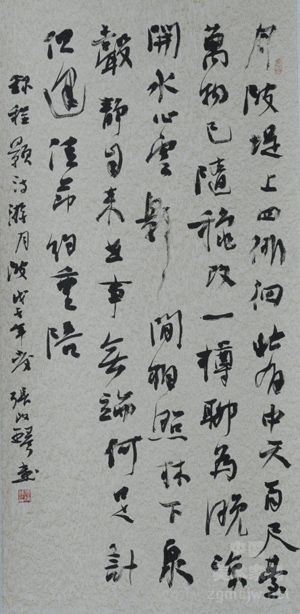 月陂堤上四徘徊北有中天百尺臺
萬物已隨穐改一樽聊為晚涼
開水心雲影間相照林下泉
聲靜自来世事無端何足計
但逢佳節約重陪
録程顥詩游月陂戊子年張改琴書